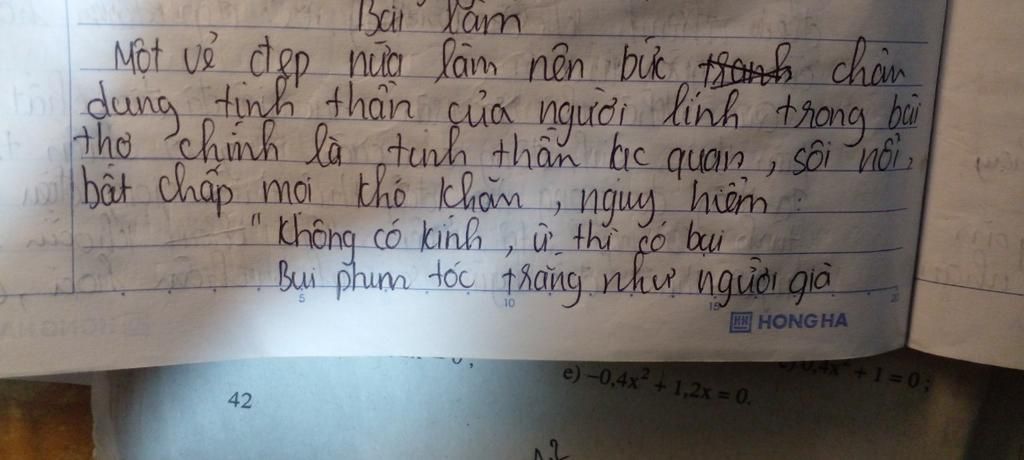 Bài làm
Một vẻ đẹp nữa làm nên bức chân
dung tinh thần của người lính trong bài
thơ chính là tinh thần lạc quan, sôi nổi,
bất chấp mọi khó khăn, nguy hiểm:
"Không có kính, ừ thì có bụi
Bụi phun tóc trắng như người già
5 10 15 20
HONG HA
e) −0,4x² + 1,2x = 0.
0,4x² + 1 = 0;
42